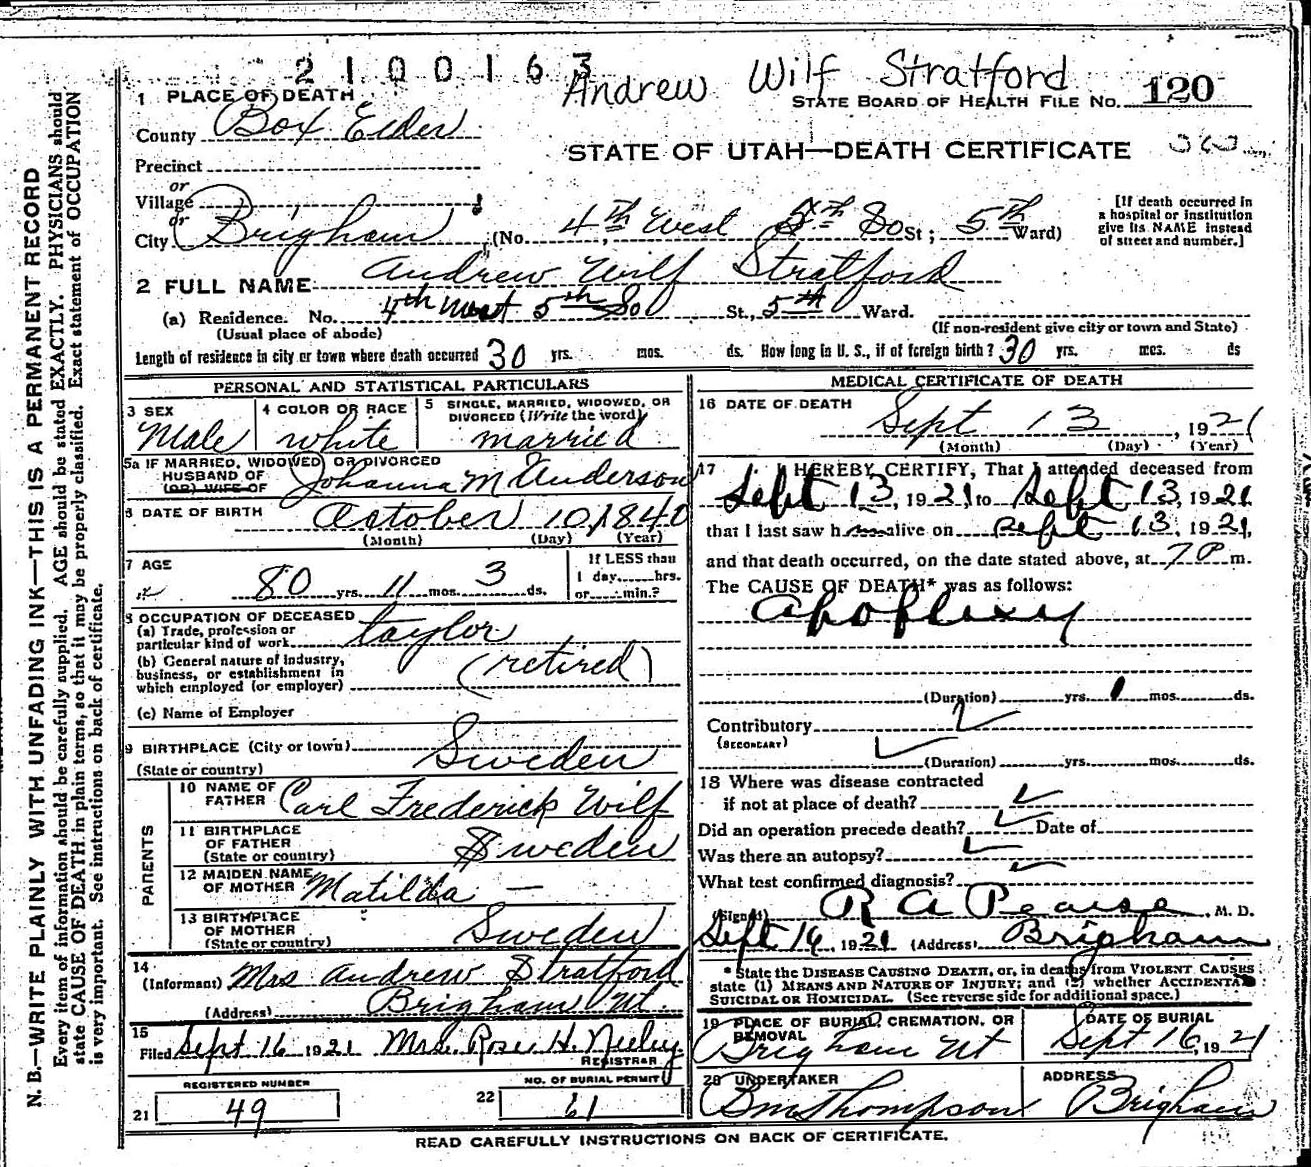 2100163
Andrew Wilf Stratford
STATE BOARD OF HEALTH FILE No. 120
1 PLACE OF DEATH
County Box Elder
STATE OF UTAH—DEATH CERTIFICATE
Precinct
or
Village
or
City Brigham (No. 4th West 5th So St; 5th Ward)
[If death occurred in
a hospital or institution
give its NAME instead
of street and number.]
2 FULL NAME Andrew Wilf Stratford
(a) Residence. No. 4th West 5th So St., 5th Ward.
(Usual place of abode)
(If non-resident give city or town and State)
Length of residence in city or town where death occurred 30 yrs. mos. ds. How long in U. S., if of foreign birth? 30 yrs. mos. ds
PERSONAL AND STATISTICAL PARTICULARS
3 SEX
Male
4 COLOR OR RACE
white
5 SINGLE, MARRIED, WIDOWED, OR
DIVORCED (Write the word)
married
5a IF MARRIED, WIDOWED, OR DIVORCED
HUSBAND OF
(OR) WIFE OF
Johanna M Anderson
6 DATE OF BIRTH October 10, 1840
(Month) (Day) (Year)
7 AGE
80 yrs. 11 mos. 3 ds.
If LESS than
1 day......hrs.
or......min.?
8 OCCUPATION OF DECEASED
(a) Trade, profession or
particular kind of work taylor
(b) General nature of industry,
business, or establishment in
which employed (or employer) (retired)
(c) Name of Employer
9 BIRTHPLACE (City or town)
(State or country) Sweden
PARENTS
10 NAME OF
FATHER Carl Frederick Wilf
11 BIRTHPLACE
OF FATHER
(State or country) Sweden
12 MAIDEN NAME
OF MOTHER Matilda —
13 BIRTHPLACE
OF MOTHER
(State or country) Sweden
14
(Informant) Mrs Andrew Stratford
(Address) Brigham Ut.
15
Filed Sept 16 1921 Mrs. Rose H. Neeley
REGISTRAR
REGISTERED NUMBER
21 49
NO. OF BURIAL PERMIT
22 61
MEDICAL CERTIFICATE OF DEATH
16 DATE OF DEATH
Sept 13, 1921
(Month) (Day) (Year)
17 I HEREBY CERTIFY, That I attended deceased from
Sept 13, 1921, to Sept 13, 1921
that I last saw him alive on Sept 13, 1921,
and that death occurred, on the date stated above, at 7 P m.
The CAUSE OF DEATH* was as follows:
apoplexy
(Duration) yrs. mos. ds.
Contributory
(SECONDARY)
(Duration) yrs. mos. ds.
18 Where was disease contracted
if not at place of death?
Did an operation precede death? Date of
Was there an autopsy?
What test confirmed diagnosis?
(Signed) R A Pearse, M. D.
Sept 16, 1921 (Address) Brigham
* State the DISEASE CAUSING DEATH, or, in deaths from VIOLENT CAUSES
state (1) MEANS AND NATURE OF INJURY; and (2) whether ACCIDENTAL
SUICIDAL OR HOMICIDAL. (See reverse side for additional space.)
19 PLACE OF BURIAL, CREMATION, OR
REMOVAL
Brigham Ut
DATE OF BURIAL
Sept 16, 1921
20 UNDERTAKER
Thompson
ADDRESS
Brigham
READ CAREFULLY INSTRUCTIONS ON BACK OF CERTIFICATE.
N. B.—WRITE PLAINLY WITH UNFADING INK—THIS IS A PERMANENT RECORD
Every item of information should be carefully supplied. AGE should be stated EXACTLY. PHYSICIANS should
state CAUSE OF DEATH in plain terms, so that it may be properly classified. Exact statement of OCCUPATION
is very important. See instructions on back of certificate.